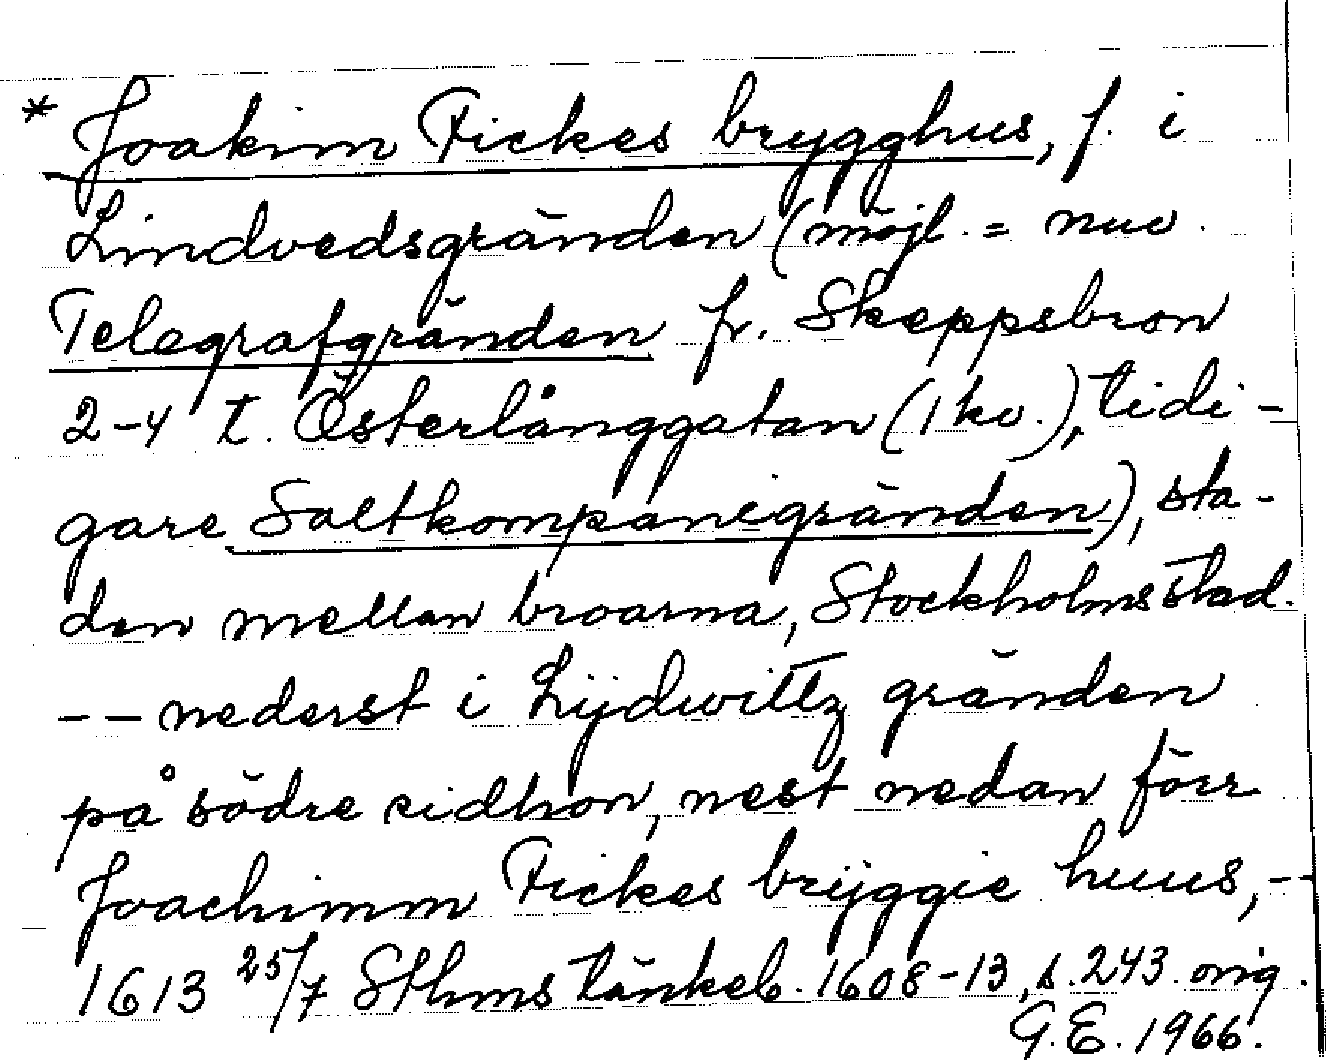 * Joakim Fickes brygghus, f. i
Lindvedsgränden (möjl. = nuv.
Telegrafgränden fr. Skeppsbron
2-4 t. Österlånggatan (1 kv.), tidi-
gare Saltkompanigränden), sta-
den mellan broarna, Stockholms stad.
-- nederst i Lijdwittz gränden
på södre sidhon, nest nedan förr
Joachimm Fickes brÿggie huus, --
1613 25/7 Sthms tänkeb. 1608-13, s. 243. orig.
G.E. 1966.